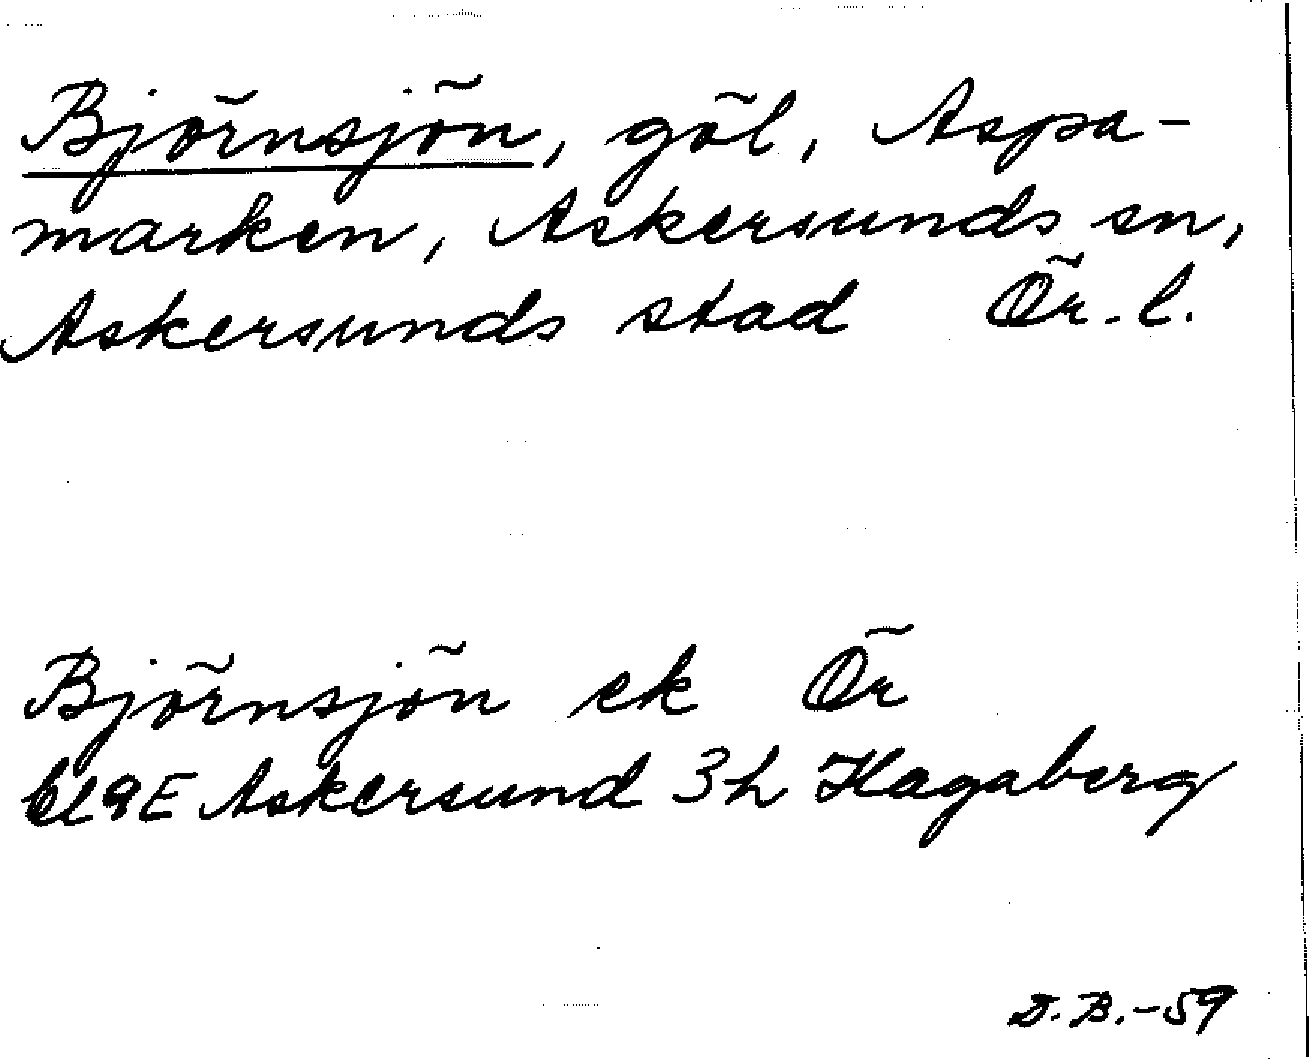 Björnsjön, göl, Aspa-
marken, Askersunds sn,
Askersunds stad Ör. l.
Björnsjön ek Ör
bl 9E Askersund 3h Hagaberg
D.B.-59